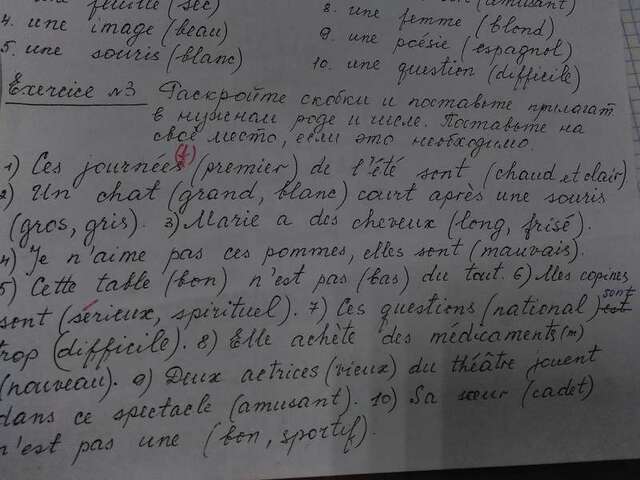 une feuille (sec)
4. une image (beau)
5. une souris (blanc)
(amusant)
8. une femme (blond)
9. une poésie (espagnol)
10. une question (difficile)
Exercice N3 Раскройте скобки и поставьте прилагат.
в нужном роде и числе. Поставьте на
своё место, если это необходимо.
1) Ces journées (f) (premier) de l'été sont (chaud et clair).
2) Un chat (grand, blanc) court après une souris
(gros, gris). 3) Marie a des cheveux (long, frisé).
4) Je n'aime pas ces pommes, elles sont (mauvais).
5) Cette table (bon) n'est pas (bas) du tout. 6) Mes copines
sont (sérieux, spirituel). 7) Ces questions (national) sont
trop (difficile). 8) Elle achète des médicaments (m)
(nouveau). 9) Deux actrices (vieux) du théâtre jouent
dans ce spectacle (amusant). 10) Sa sœur (cadet)
n'est pas une (bon, sportif).